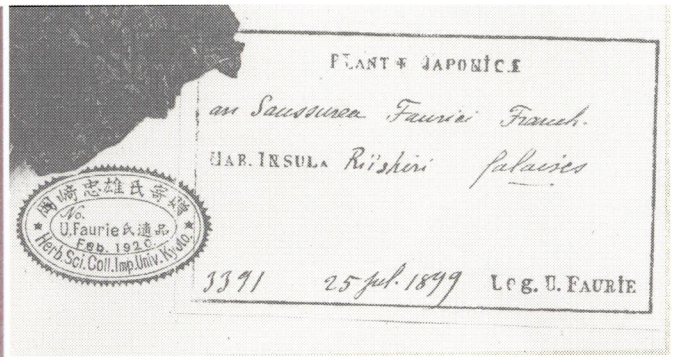 PLANTÆ JAPONICÆ
an Saussurea Fauriei Franch.
HAB. INSULA Riishiri falaises
3391 25 jul. 1899 Leg. U. FAURIE
岡崎忠雄氏寄贈
No.
U.Faurie氏遺品
Feb. 1920.
Herb.Sci.Coll.Imp.Univ.Kyoto.